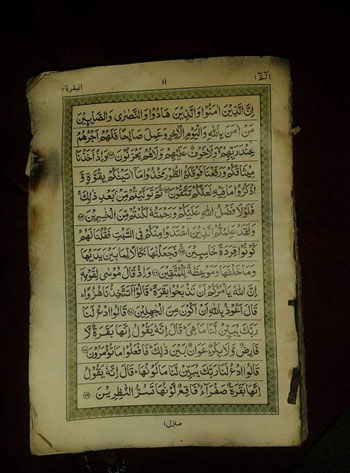 البقرة ٢
١١
الٓمّٓ ١
اِنَّ الَّذِيْنَ اٰمَنُوْا وَالَّذِيْنَ هَادُوْا وَالنَّصٰرٰى وَالصَّابِـِٕيْنَ
مَنْ اٰمَنَ بِاللّٰهِ وَالْيَوْمِ الْاٰخِرِ وَعَمِلَ صَالِحًا فَلَهُمْ اَجْرُهُمْ
عِنْدَ رَبِّهِمْ وَلَا خَوْفٌ عَلَيْهِمْ وَلَا هُمْ يَحْزَنُوْنَ ۝ وَاِذْ اَخَذْنَا
مِيْثَاقَكُمْ وَرَفَعْنَا فَوْقَكُمُ الطُّوْرَ خُذُوْا مَاۤ اٰتَيْنٰكُمْ بِقُوَّةٍ وَّ
اذْكُرُوْا مَا فِيْهِ لَعَلَّكُمْ تَتَّقُوْنَ ۝ ثُمَّ تَوَلَّيْتُمْ مِّنْۢ بَعْدِ ذٰلِكَ
فَلَوْلَا فَضْلُ اللّٰهِ عَلَيْكُمْ وَرَحْمَتُهٗ لَكُنْتُمْ مِّنَ الْخٰسِرِيْنَ ۝
وَلَقَدْ عَلِمْتُمُ الَّذِيْنَ اعْتَدَوْا مِنْكُمْ فِى السَّبْتِ فَقُلْنَا لَهُمْ
كُوْنُوْا قِرَدَةً خَاسِـِٕيْنَ ۝ فَجَعَلْنٰهَا نَكَالًا لِّمَا بَيْنَ يَدَيْهَا
وَمَا خَلْفَهَا وَمَوْعِظَةً لِّلْمُتَّقِيْنَ ۝ وَاِذْ قَالَ مُوْسٰى لِقَوْمِهٖۤ
اِنَّ اللّٰهَ يَاْمُرُكُمْ اَنْ تَذْبَحُوْا بَقَرَةً ؕ قَالُوْۤا اَتَتَّخِذُنَا هُزُوًا ؕ
قَالَ اَعُوْذُ بِاللّٰهِ اَنْ اَكُوْنَ مِنَ الْجٰهِلِيْنَ ۝ قَالُوا ادْعُ لَنَا
رَبَّكَ يُبَيِّنْ لَّنَا مَا هِيَ ؕ قَالَ اِنَّهٗ يَقُوْلُ اِنَّهَا بَقَرَةٌ لَّا
فَارِضٌ وَّلَا بِكْرٌ ؕ عَوَانٌۢ بَيْنَ ذٰلِكَ ؕ فَافْعَلُوْا مَا تُؤْمَرُوْنَ ۝
قَالُوا ادْعُ لَنَا رَبَّكَ يُبَيِّنْ لَّنَا مَا لَوْنُهَا ؕ قَالَ اِنَّهٗ يَقُوْلُ
اِنَّهَا بَقَرَةٌ صَفْرَآءُ ۙ فَاقِعٌ لَّوْنُهَا تَسُرُّ النّٰظِرِيْنَ ۝
منزل ١